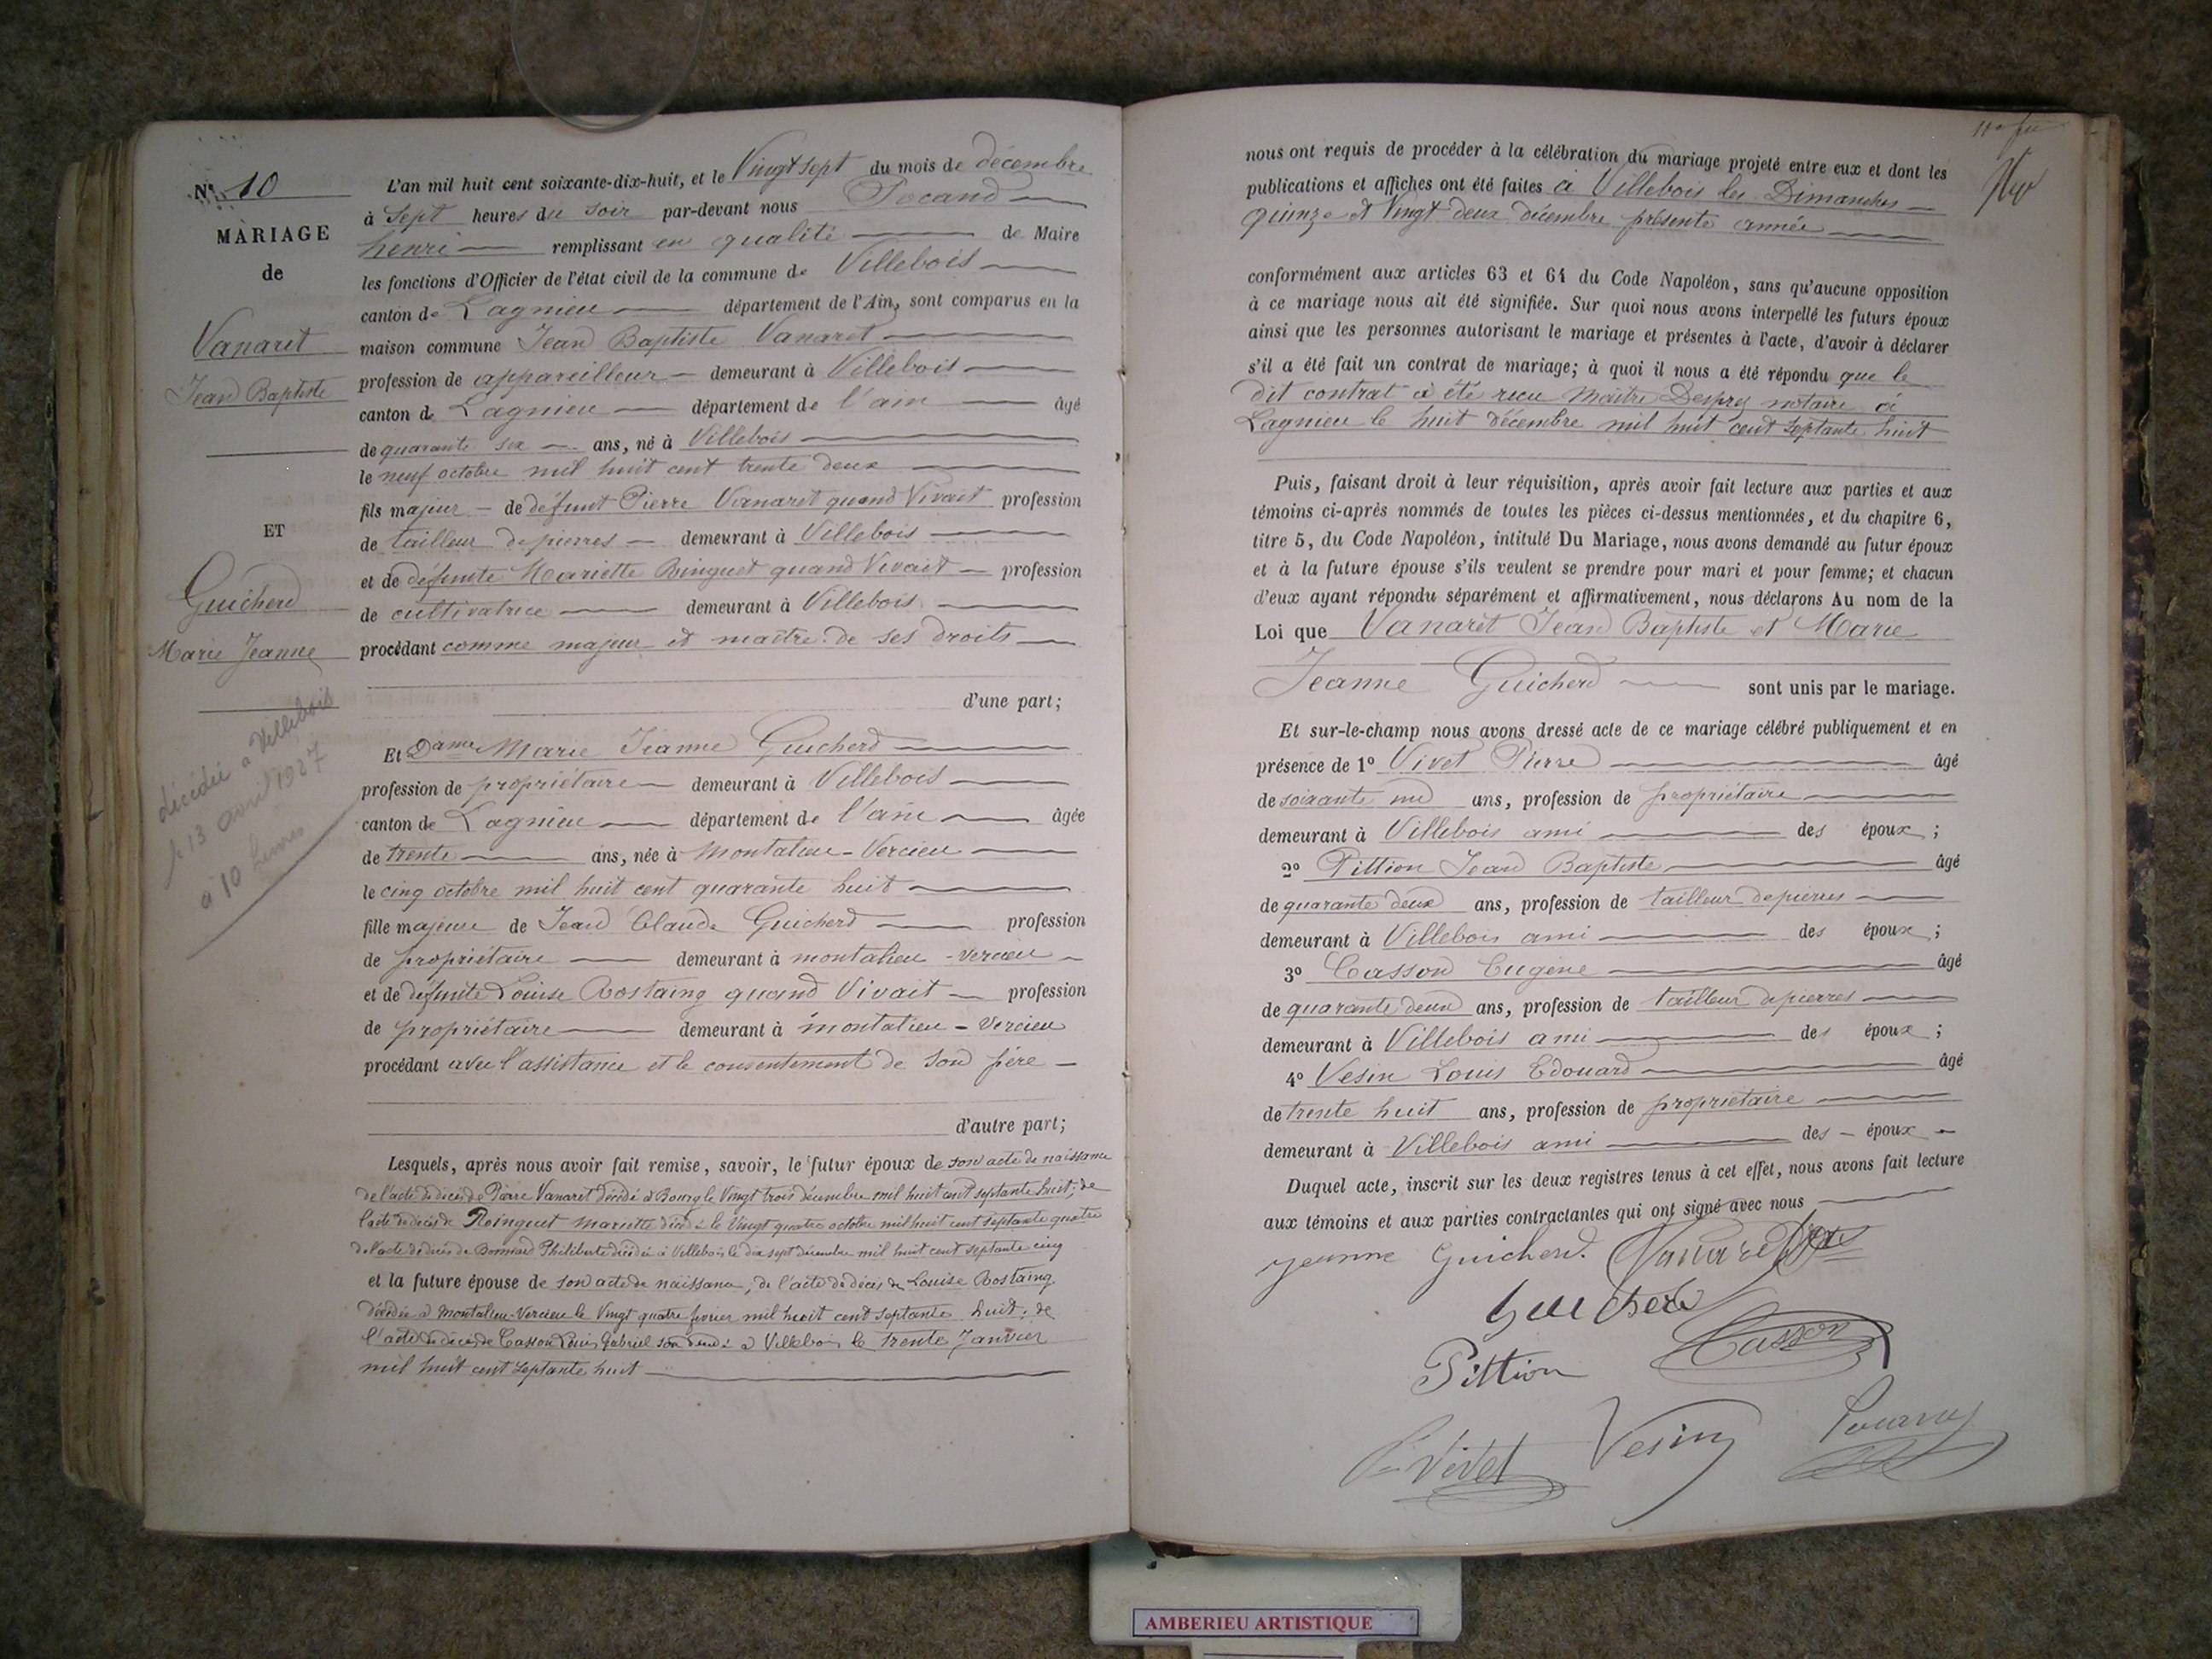 N° 10
MARIAGE
de
Vanaret
Jean Baptiste
ET
Guicherd
Marie Jeanne
décédée à Villebois
le 13 avril 1927
à 10 heures
L'an mil huit cent soixante-dix-huit, et le Vingt sept du mois de décembre
à Sept heures du soir par-devant nous Pecand
henri remplissant en qualité de Maire
les fonctions d'Officier de l'état civil de la commune de Villebois
canton de Lagnieu département de l'Ain, sont comparus en la
maison commune Jean Baptiste Vanaret
profession de appareilleur demeurant à Villebois
canton de Lagnieu département de l'ain âgé
de quarante six ans, né à Villebois
le neuf octobre mil huit cent trente deux
fils majeur de défunt Pierre Vanaret quand Vivait profession
de tailleur de pierres demeurant à Villebois
et de défunte Mariette Ringuet quand Vivait profession
de cultivatrice demeurant à Villebois
procédant comme majeur et maître de ses droits
d'une part;
Et Dame Marie Jeanne Guicherd
profession de propriétaire demeurant à Villebois
canton de Lagnieu département de l'ain âgée
de trente ans, née à Montalieu-Vercieu
le cinq octobre mil huit cent quarante huit
fille majeure de Jean Claude Guicherd profession
de propriétaire demeurant à montalieu-vercieu
et de défunte Louise Rostaing quand Vivait profession
de propriétaire demeurant à montalieu-vercieu
procédant avec l'assistance et le consentement de son père
d'autre part;
Lesquels, après nous avoir fait remise, savoir, le futur époux de son acte de naissance
de l'acte de décès de Pierre Vanaret décédé à Bourg le Vingt trois décembre mil huit cent septante huit; de
l'acte de décès de Roinguet Mariette le Vingt quatre octobre mil huit cent septante quatre
de l'acte de décès de Bonnard Philiberte décédée à Villebois le dix sept décembre mil huit cent septante cinq
et la future épouse de son acte de naissance, de l'acte de décès de Louise Rostaing
décédée à Montalieu-Vercieu le Vingt quatre fevrier mil huit cent septante huit; de
l'acte de décès de Casson Louis Gabriel à Villebois le trente Janvier
mil huit cent septante huit
nous ont requis de procéder à la célébration du mariage projeté entre eux et dont les
publications et affiches ont été faites à Villebois les Dimanches
quinze et Vingt deux décembre présente année
conformément aux articles 63 et 64 du Code Napoléon, sans qu'aucune opposition
à ce mariage nous ait été signifiée. Sur quoi nous avons interpellé les futurs époux
ainsi que les personnes autorisant le mariage et présentes à l'acte, d'avoir à déclarer
s'il a été fait un contrat de mariage; à quoi il nous a été répondu que le
dit contrat a été reçu Maitre Desprez notaire à
Lagnieu le huit décembre mil huit cent septante huit
Puis, faisant droit à leur réquisition, après avoir fait lecture aux parties et aux
témoins ci-après nommés de toutes les pièces ci-dessus mentionnées, et du chapitre 6,
titre 5, du Code Napoléon, intitulé Du Mariage, nous avons demandé au futur époux
et à la future épouse s'ils veulent se prendre pour mari et pour femme; et chacun
d'eux ayant répondu séparément et affirmativement, nous déclarons Au nom de la
Loi que Vanaret Jean Baptiste et Marie
Jeanne Guicherd sont unis par le mariage.
Et sur-le-champ nous avons dressé acte de ce mariage célébré publiquement et en
présence de 1° Vivet Pierre âgé
de soixante ans, profession de propriétaire
demeurant à Villebois ami des époux;
2° Pittion Jean Baptiste âgé
de quarante deux ans, profession de tailleur de pierres
demeurant à Villebois ami des époux;
3° Casson Eugène âgé
de quarante deux ans, profession de tailleur de pierres
demeurant à Villebois ami des époux;
4° Vesin Louis Edouard âgé
de trente huit ans, profession de propriétaire
demeurant à Villebois ami des époux
Duquel acte, inscrit sur les deux registres tenus à cet effet, nous avons fait lecture
aux témoins et aux parties contractantes qui ont signé avec nous
Jeanne Guicherd. Vanaret
Guicherd
Pittion Casson
Vivet Vesin
AMBERIEU ARTISTIQUE